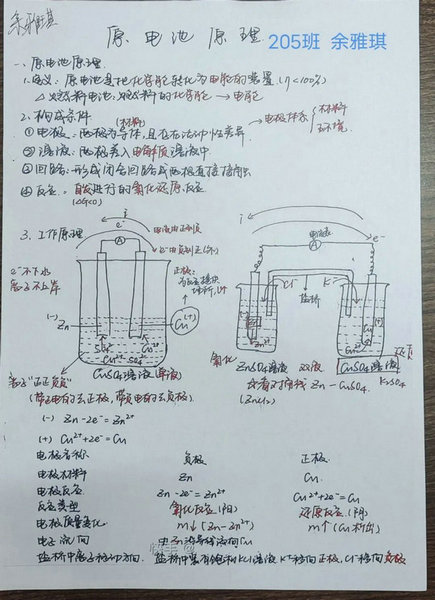 余雅琪
原电池原理
205班 余雅琪
一、原电池原理
1.定义：原电池是把化学能转化为电能的装置.(η<100%)
△燃料电池：燃料的化学能→电能
2.构成条件
(材料)
→电极体系{材料
环境
①电极：两极为导体，且存在活动性差异
②溶液：两极插入电解质溶液中
③回路：形成闭合回路或两极直接接触
④反应：自发进行的氧化还原反应
(△G<0)
3.工作原理
i
e⁻
A
电流由正到负
e⁻由负到正(外)
e⁻不下水
离子不上岸
正极：
(-)
Zn
(+)
Cu
SO₄²⁻
Cu²⁺
CuSO₄溶液(单液)
离子"正正负负"
(带正电的去正极，带负电的去负极)
i
e⁻
A
Cl⁻
K⁺
盐桥
(-)
(+)
Zn²⁺
Cu²⁺
氧化
还原
ZnSO₄溶液
双液
CuSO₄溶液
Zn-CuSO₄
K₂SO₄
(ZnCl₂)
(-) Zn-2e⁻=Zn²⁺
(+) Cu²⁺+2e⁻=Cu
电极名称 负极 正极
电极材料 Zn Cu
电极反应 Zn-2e⁻=Zn²⁺ Cu²⁺+2e⁻=Cu
反应类型 氧化反应(阳) 还原反应(阴)
电极质量变化 m↓(Zn-Zn²⁺) m↑(Cu析出)
电子流向 由Zn沿导线流向Cu
盐桥中离子移动方向 盐桥中装有饱和KCl溶液 K⁺移向正极，Cl⁻移向负极